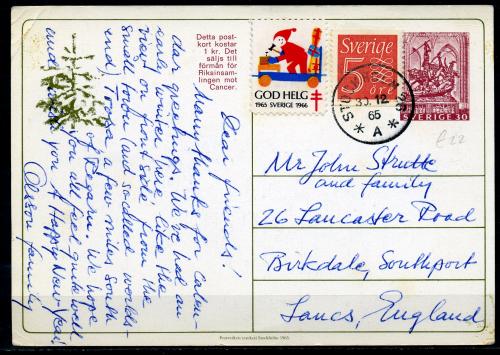 Detta post-
kort kostar
1 kr. Det
säljs till
förmån för
Riksinsam-
lingen mot
Cancer.
GOD HELG
1965 SVERIGE 1966
Sverige
5 öre
SVERIGE 30
30.12
65
* A *
£22
Dear friends!
Many thanks for calen-
dar greetings. We've had an
early winter here like the
view on front side from the
small town (and so called worlds-
end) Trosa a few miles south
of Regarn. We hope
you all feel quite well
and wish you A Happy New Year!
Olsson family
Mr John Strutte
and family
26 Lancaster Road
Birkdale, Southport
Lancs, England
Postverkets tryckeri Stockholm 1965